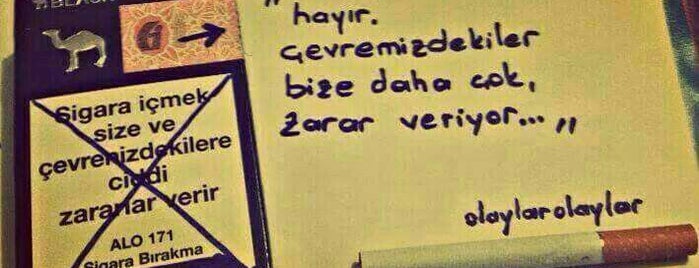 BLACK
Sigara içmek
size ve
çevrenizdekilere
ciddi
zararlar verir
ALO 171
Sigara Bırakma
"hayır.
çevremizdekiler
bize daha çok,
zarar veriyor... "
olaylarolaylar